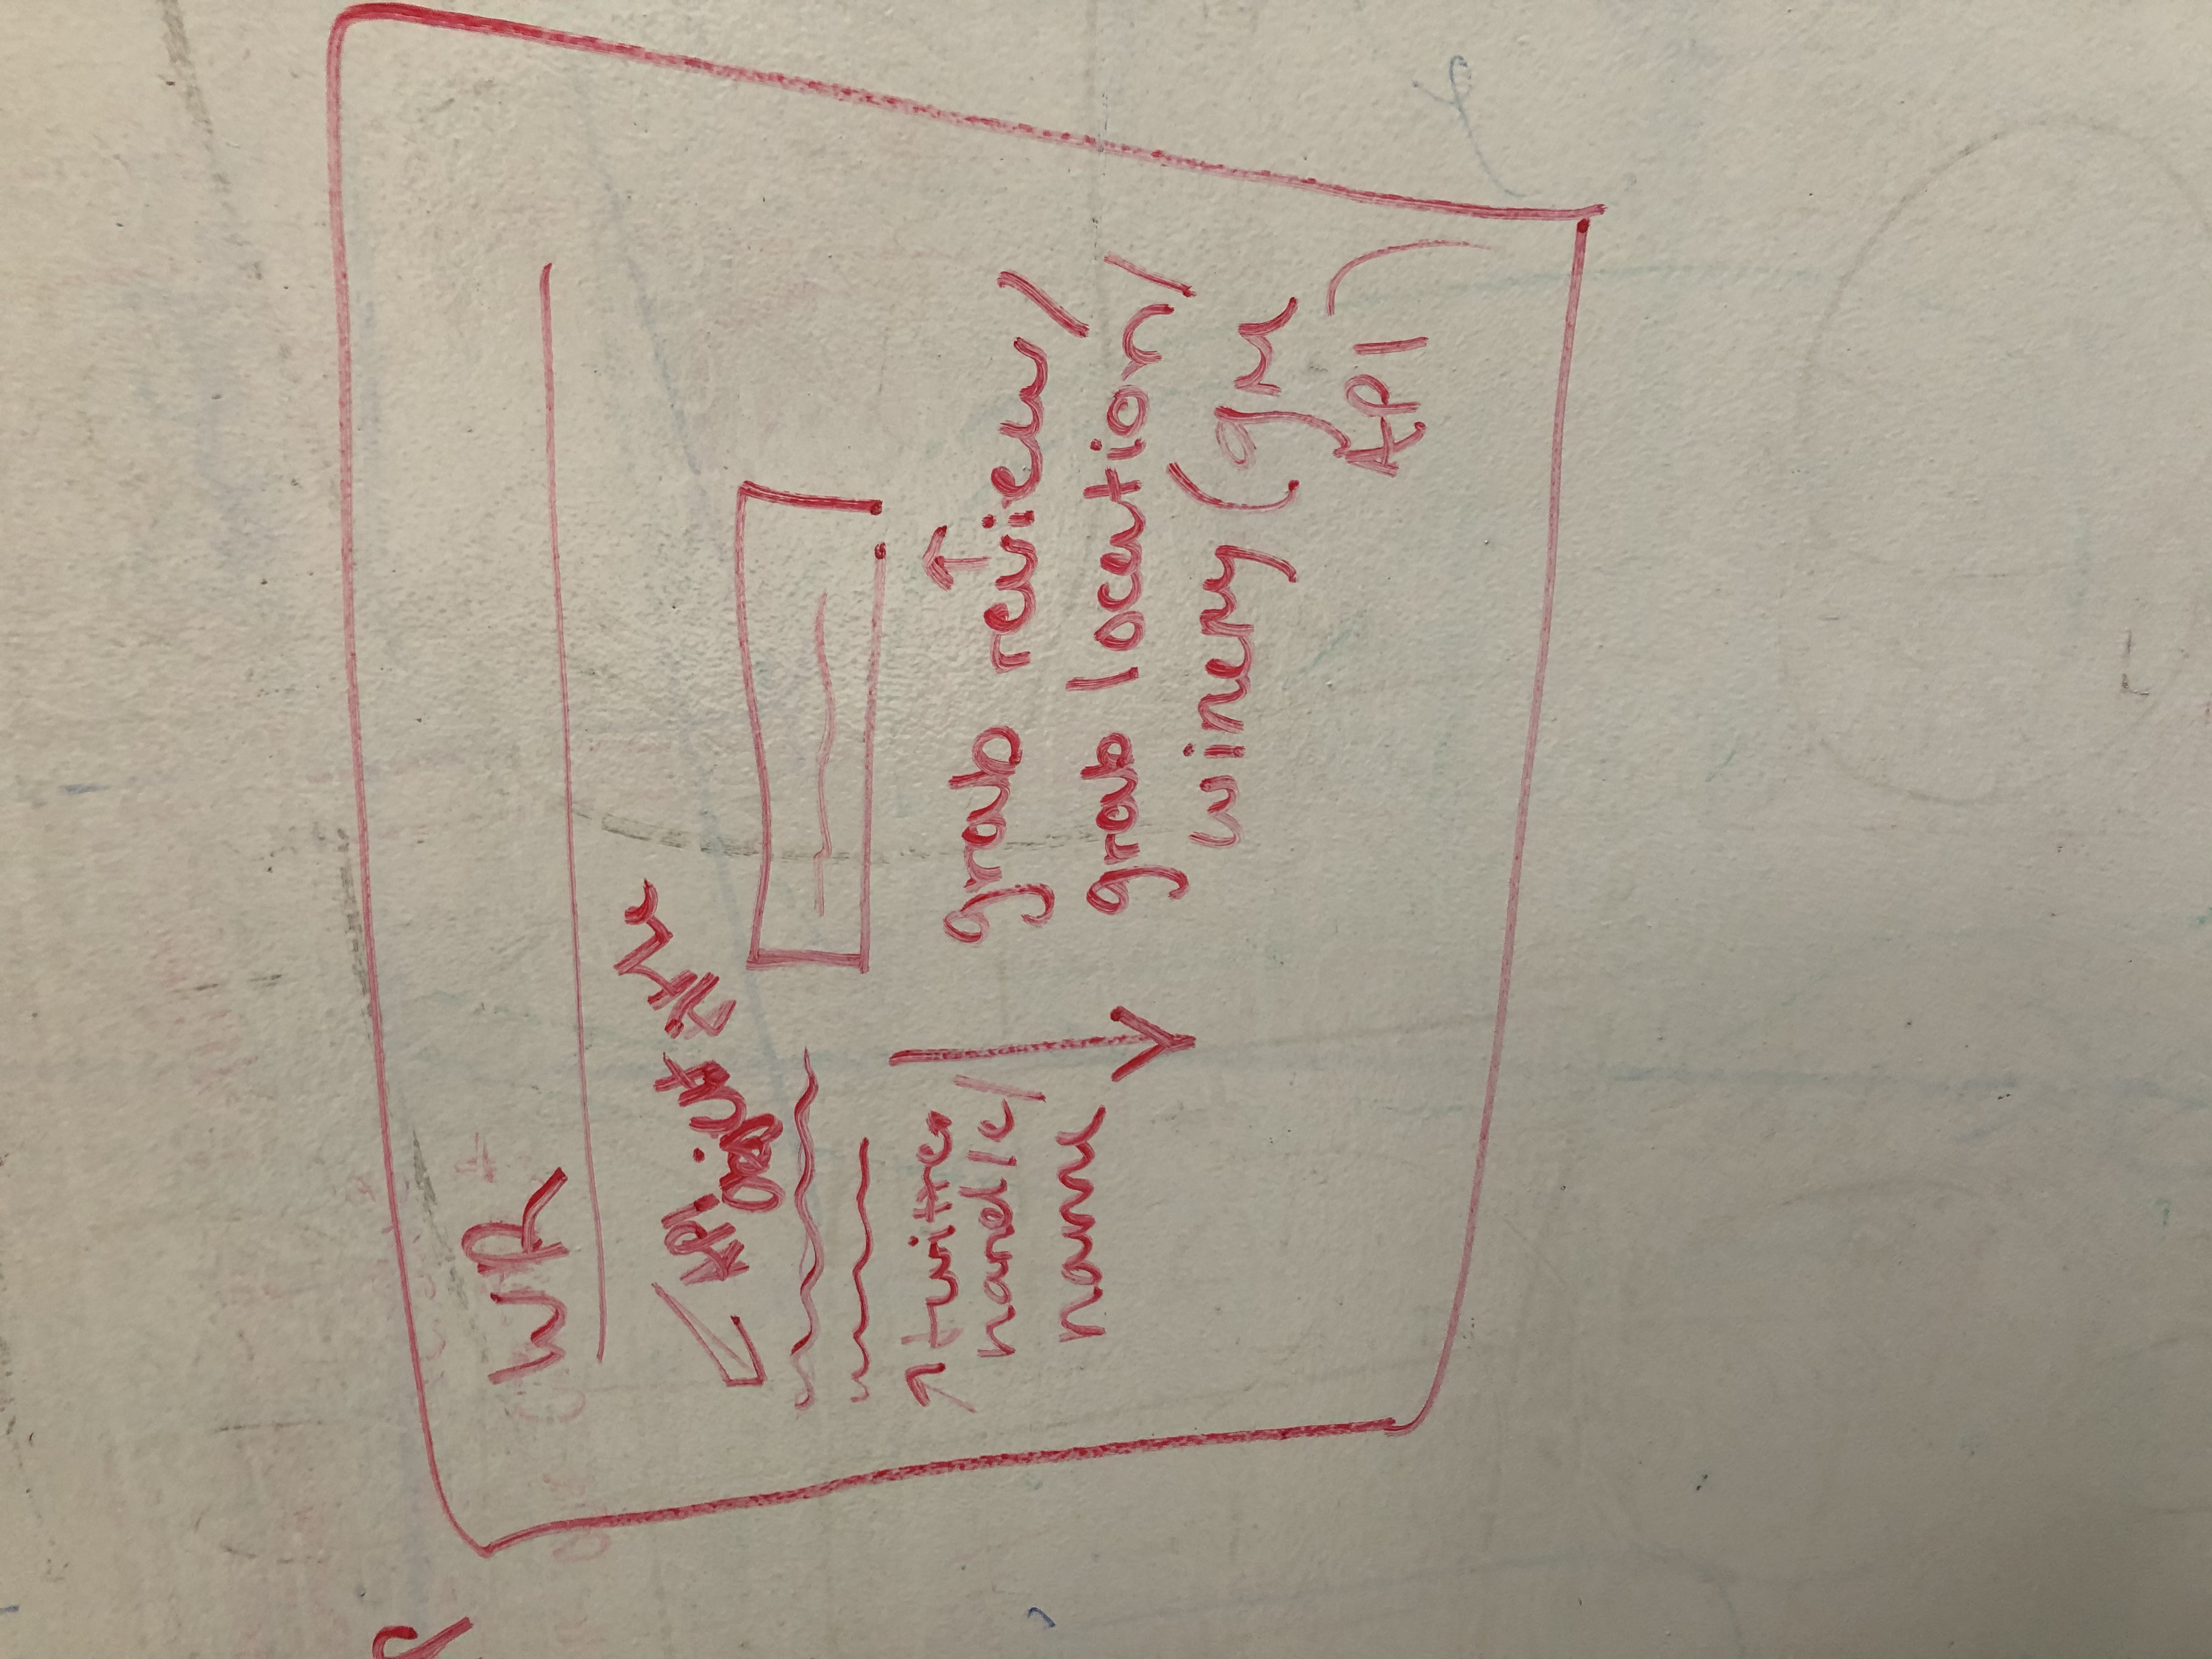 WR
API
object title
twitter
handle/
name
grab review/
grab location/
winery (gm
API)